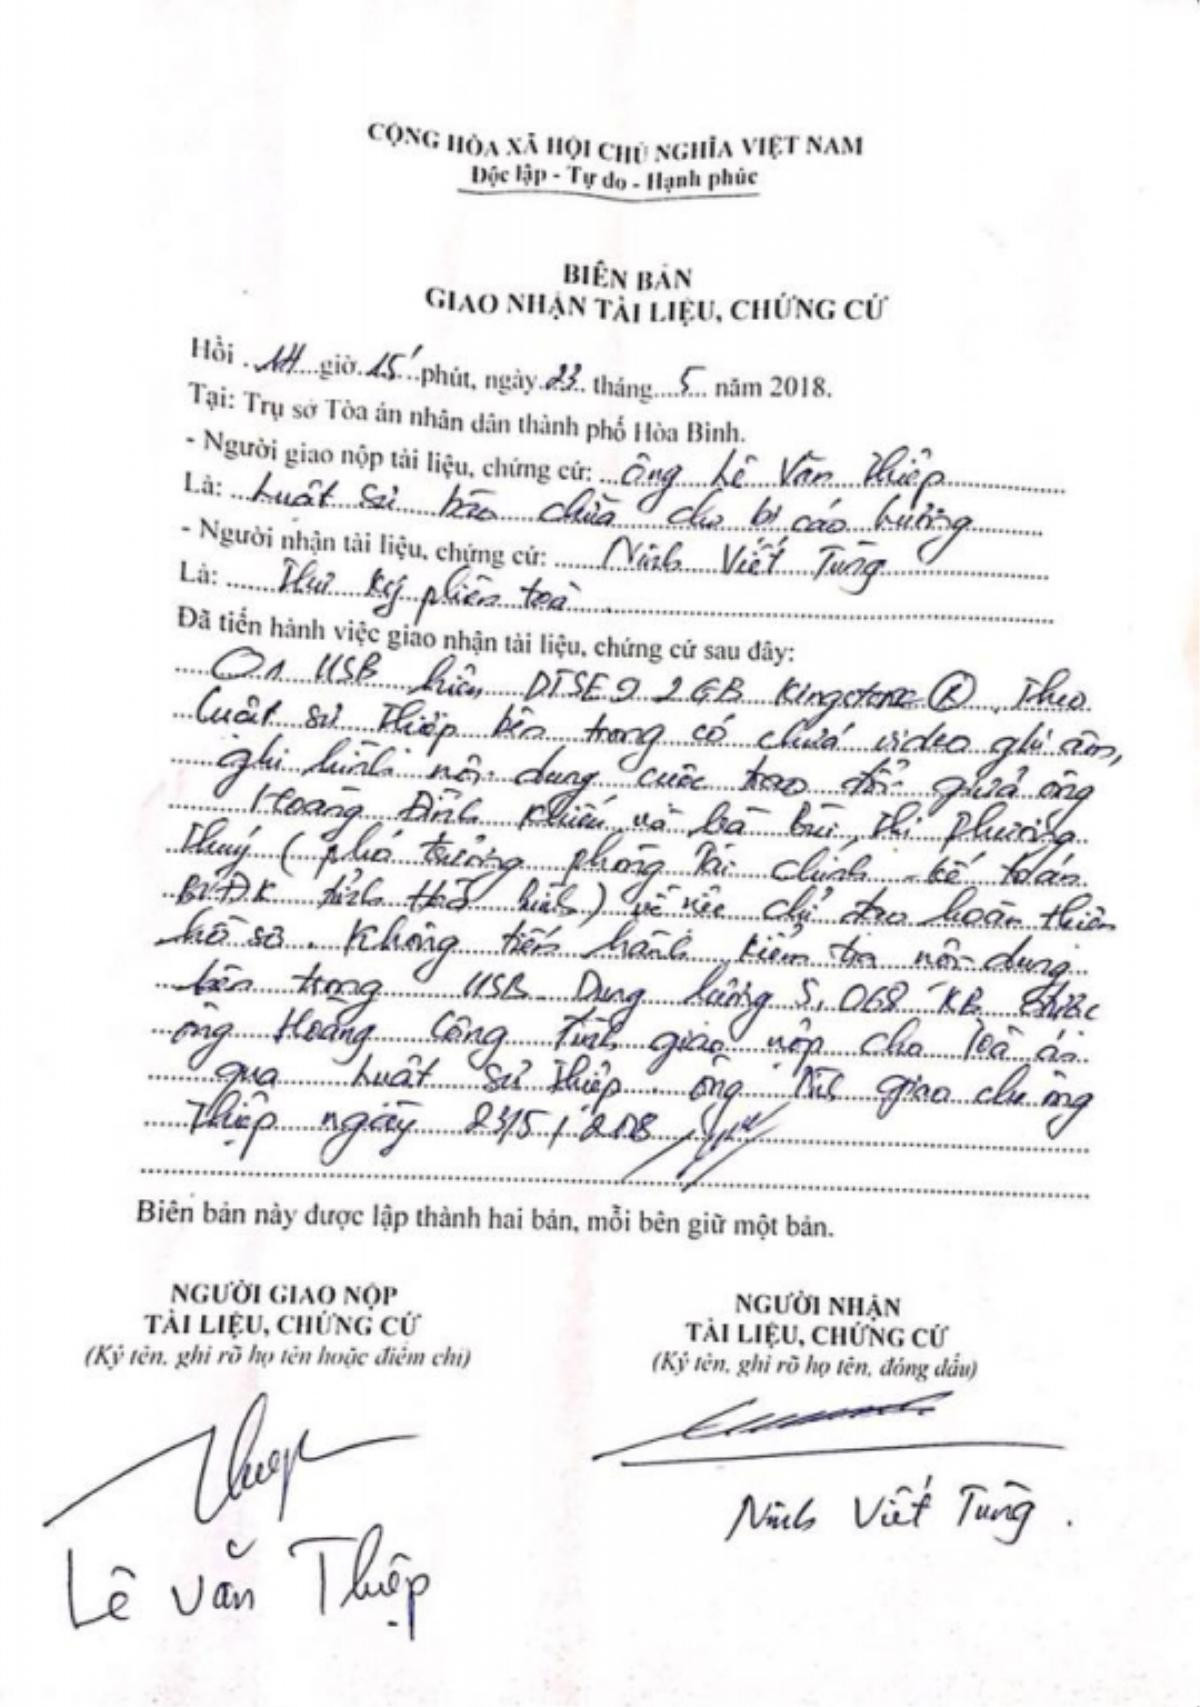 CỘNG HÒA XÃ HỘI CHỦ NGHĨA VIỆT NAM
Độc lập - Tự do - Hạnh phúc
BIÊN BẢN
GIAO NHẬN TÀI LIỆU, CHỨNG CỨ
Hồi . 14 giờ 15' phút, ngày 23 tháng 5 năm 2018.
Tại: Trụ sở Tòa án nhân dân thành phố Hòa Bình.
- Người giao nộp tài liệu, chứng cứ: ông Lê Văn Thiệp
Là: Luật sư bào chữa cho bị cáo Lương
- Người nhận tài liệu, chứng cứ: Ninh Viết Tùng
Là: Thư ký phiên toà
Đã tiến hành việc giao nhận tài liệu, chứng cứ sau đây:
01 USB hiệu DTSE9 2GB Kingstone ®. Theo
Luật sư Thiệp bên trong có chứa video ghi âm,
ghi hình nội dung cuộc trao đổi giữa ông
Hoàng Đình Khiếu và bà Bùi Thị Phương
Thuý (phó trưởng phòng Tài chính - kế toán
BVĐK tỉnh Hoà Bình) về việc chỉ đạo hoàn thiện
hồ sơ. Không tiến hành kiểm tra nội dung
bên trong USB. Dung lượng 5,068 KB được
ông Hoàng Công Tình giao nộp cho Toà án
qua Luật sư Thiệp. ông Tình giao cho ông
Thiệp ngày 23/5/2018
Biên bản này được lập thành hai bản, mỗi bên giữ một bản.
NGƯỜI GIAO NỘP
TÀI LIỆU, CHỨNG CỨ
(Ký tên, ghi rõ họ tên hoặc điểm chỉ)
Thiệp
Lê Văn Thiệp
NGƯỜI NHẬN
TÀI LIỆU, CHỨNG CỨ
(Ký tên, ghi rõ họ tên, đóng dấu)
Ninh Viết Tùng .